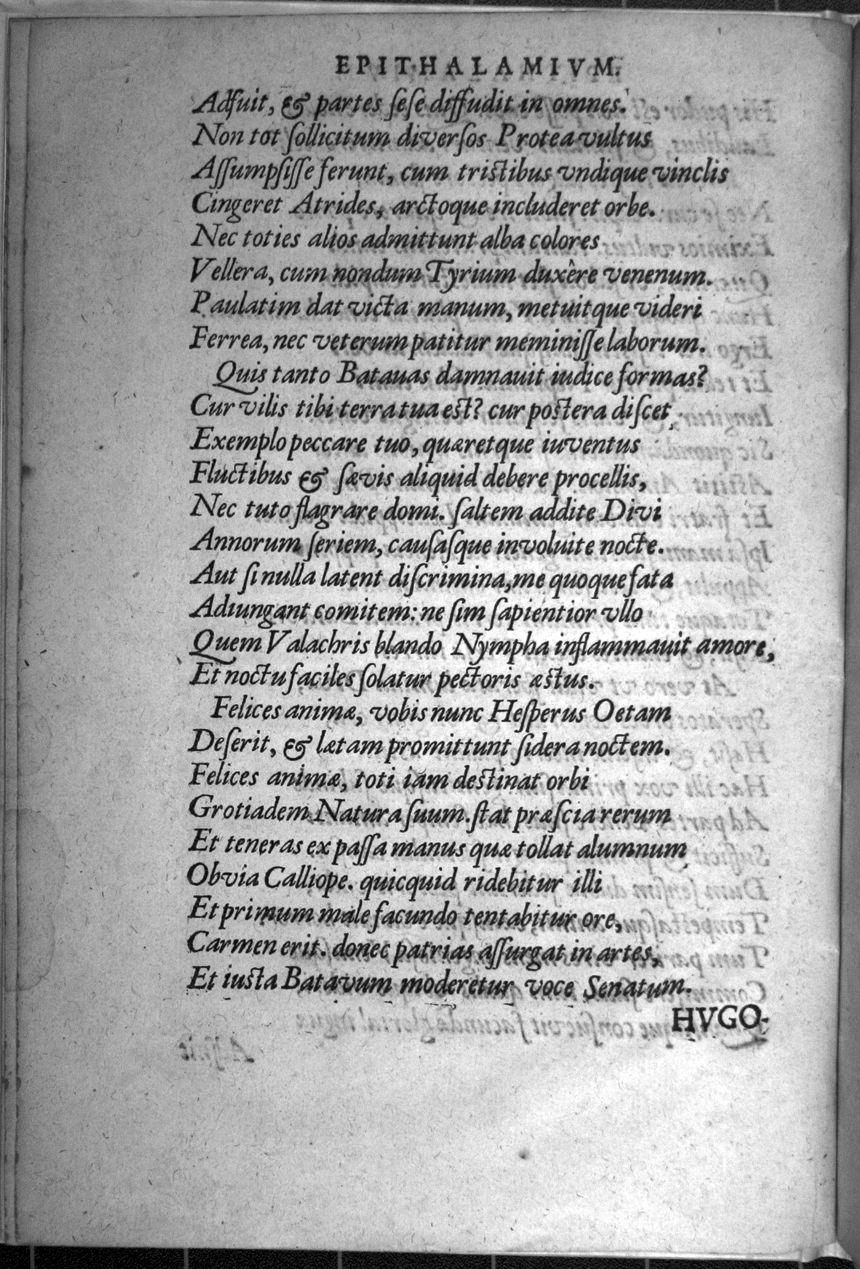 EPITHALAMIVM.
Adfuit, & partes ſeſe diffudit in omnes.
Non tot ſollicitum diverſos Protea vultus
Aſſumpſiſſe ferunt, cum triſtibus vndique vinclis
Cingeret Atrides, arctoque includeret orbe.
Nec toties alios admittunt alba colores
Vellera, cum nondum Tyrium duxêre venenum.
Paulatim dat victa manum, metuitque videri
Ferrea, nec veterum patitur meminiſſe laborum.
Quis tanto Batauas damnauit iudice formas?
Cur vilis tibi terra tua eſt? cur poſtera diſcet,
Exemplo peccare tuo, quæretque iuventus
Fluctibus & ſævis aliquid debere procellis,
Nec tuto flagrare domi. ſaltem addite Divi
Annorum ſeriem, cauſaſque involuite nocte.
Aut ſi nulla latent diſcrimina, me quoque fata
Adiungant comitem: ne ſim ſapientior vllo
Quem Valachris blando Nympha inflammauit amore,
Et noctu faciles ſolatur pectoris æſtus.
Felices animæ, vobis nunc Heſperus Oetam
Deſerit, & lætam promittunt ſidera noctem.
Felices animæ, toti iam deſtinat orbi
Grotiadem Natura ſuum. ſtat præſcia rerum
Et teneras expaſſa manus quæ tollat alumnum
Obvia Calliope. quicquid ridebitur illi
Et primum male facundo tentabitur ore,
Carmen erit. donec patrias aſſurgat in artes,
Et iuſta Batavum moderetur voce Senatum.
HVGO-